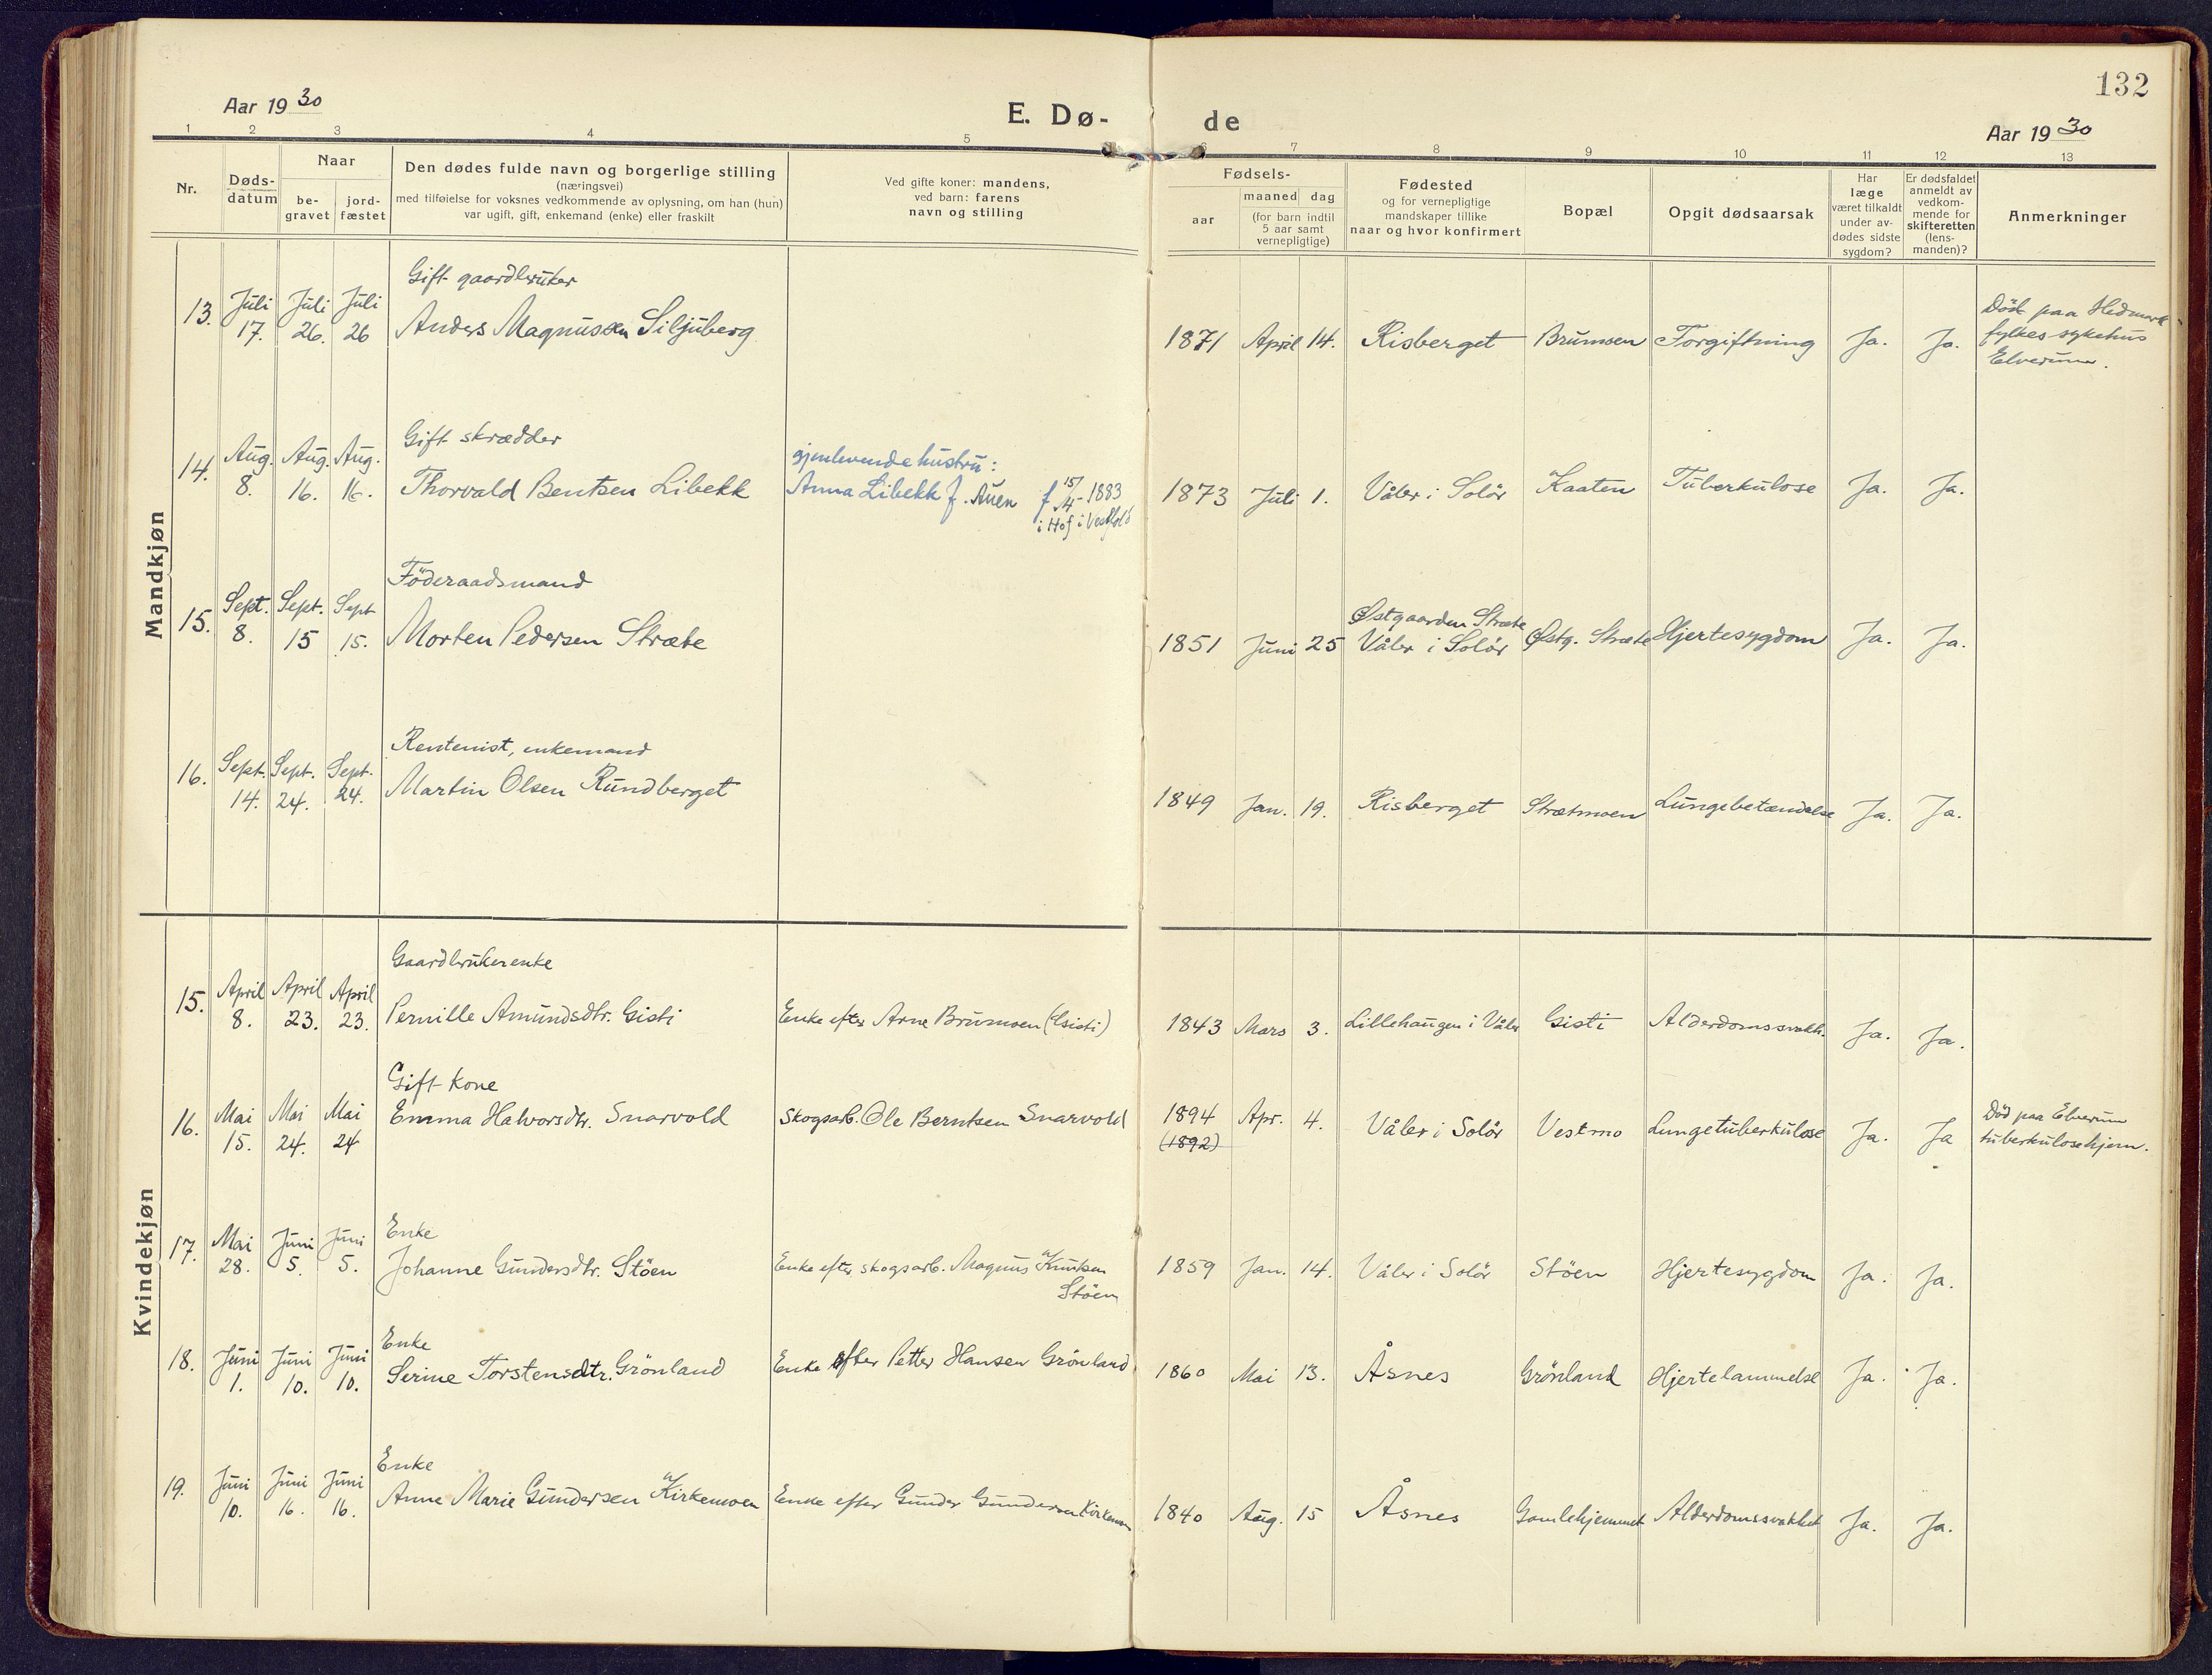 132
Aar 1930
E. Dø-
de
Aar 1930
1 2 3 4 5 6 7 8 9 10 11 12 13
Nr.
Døds-
datum
Naar
be-
gravet
jord-
fæstet
Den dødes fulde navn og borgerlige stilling
(næringsvei)
med tilføielse for voksnes vedkommende av oplysning, om han (hun)
var ugift, gift, enkemand (enke) eller fraskilt
Ved gifte koner: mandens,
ved barn: farens
navn og stilling
Fødsels-
aar
maaned dag
(for barn indtil
5 aar samt
vernepligtige)
Fødested
og for vernepligtige
mandskaper tillike
naar og hvor konfirmert
Bopæl
Opgit dødsaarsak
Har
læge
været tilkaldt
under av-
dødes sidste
sygdom?
Er dødsfaldet
anmeldt av
vedkom-
mende for
skifteretten
(lens-
manden)?
Anmerkninger
Mandkjøn
13.
Juli
17.
Juli
26.
Juli
26
Gift gaardbruker
Anders Magnussen Siljuberg
1871 April 14. Risberget Brumoen Forgiftning Ja. Ja.
Död paa Hedmark
fylkes sykehus
Elverum.
14.
Aug.
8.
Aug.
16.
Aug.
16.
Gift skrædder
Thorvald Bentsen Libekk
gjenlevende hustru:
Anna Libekk f. Auen f 15/4-1883
i Hof i Vestfold
1873 Juli 1. Våler i Solör Kaaten Tuberkulose Ja. Ja.
15.
Sept.
8.
Sept.
15
Sept
15.
Föderaadsmand
Morten Pedersen Stræte
1851 Juni 25
Østgaarden Stræte
Våler i Solör
Østg. Stræte Hjertesygdom Ja. Ja.
16.
Sept.
14.
Sept.
24.
Sept.
24.
Rentenist, enkemand
Martin Olsen Rundberget
1849 Jan. 19. Risberget Strætmoen Lungebetændelse Ja. Ja.
Kvindekjøn
15.
April
8.
April
23.
April
23.
Gaardbrukerenke
Pernille Amundsdtr. Gisti
Enke efter Arne Brumoen (Gisti)
1843 Mars 3. Lillehaugen i Våler Gisti Alderdomssvakh. Ja. Ja.
16.
Mai
15.
Mai
24.
Mai
24
Gift kone
Emma Halvorsdtr. Snarvold
Skogsarb. Ole Berntsen Snarvold
1894
(1892)
Apr. 4. Våler i Solör Vestmo Lungetuberkulose Ja. Ja
Död paa Elverum
tuberkulosehjem.
17.
Mai
28.
Juni
5.
Juni
5.
Enke
Johanne Gundersdtr. Stöen
Enke efter skogsarb. Magnus Knutsen
Stöen
1859 Jan. 14. Våler i Solör Stöen Hjertesygdom Ja. Ja.
18.
Juni
1.
Juni
10.
Juni
10.
Enke
Serine Torstensdtr. Grönland
Enke efter Petter Hansen Grönland
1860 Mai 13. Åsnes Grönland Hjertelammelse Ja. Ja.
19.
Juni
10.
Juni
16.
Juni
16.
Enke
Anne Marie Gundersen Kirkemoen
Enke efter Gunder Gundersen Kirkemoen
1840 Aug. 15 Åsnes Gamlehjemmet Alderdomssvakhet Ja. Ja.